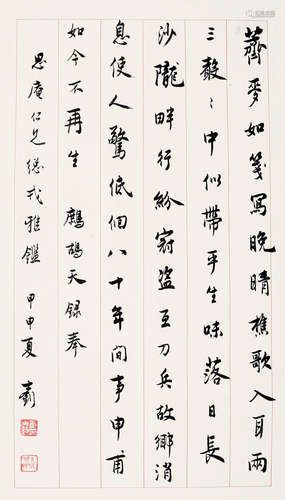 薺麥如箋寫晚晴樵歌入耳兩
三聲〻中似帶平生味落日長
沙隴畔行紛竊盜互刀兵故鄉消
息使人驚低佪八十年間事申甫
如今不再生 鷓鴣天錄奉
思庵仁兄總戎雅鑑 甲申夏